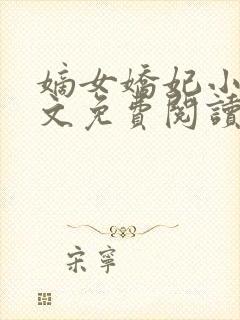 嫡女嬌妃小
文免費閱讀
宋寧